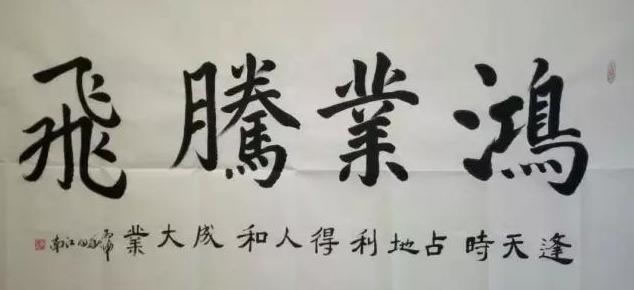 鴻業騰飛
逢天時占地利得人和成大業
丙申 江南